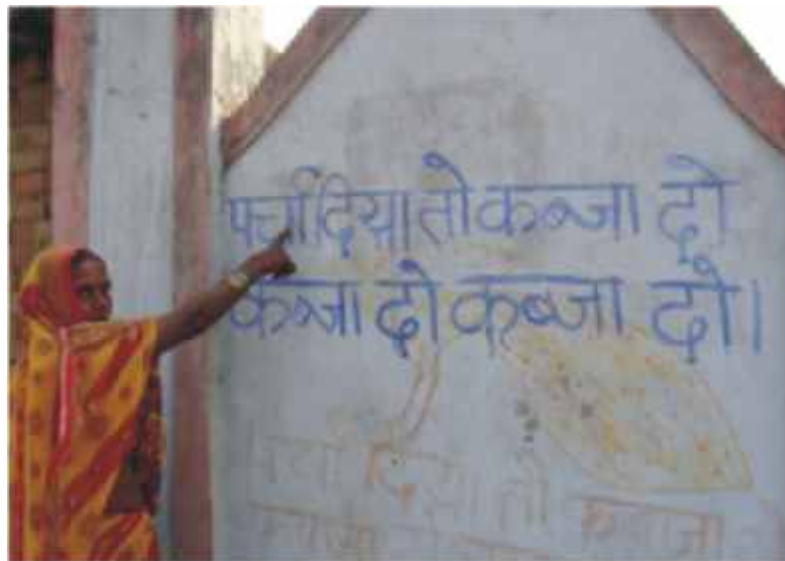 पर्चा दिया तो कब्जा दो
कब्जा दो कब्जा दो।
दिया तो